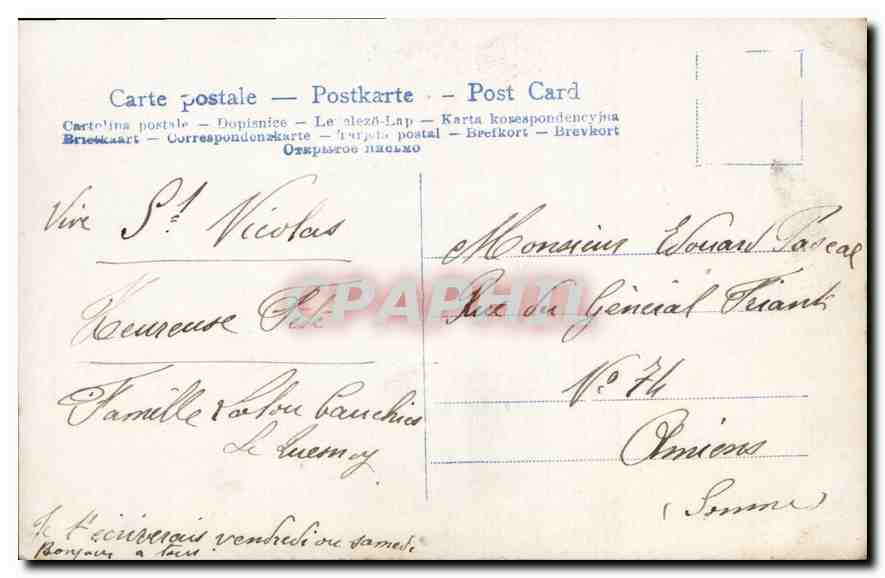 Carte postale — Postkarte - – Post Card
Cartolina postale – Dopisnice – Levelező-Lap – Karta korespondencyjna
Briefkaart – Correspondenzkarte – Tarjeta postal – Brefkort – Brevkort
Открытое письмо
Vive St Nicolas
Heureuse Fête
Famille Cauchies
Le Quesnoy
Je t'écriverais vendredi ou samedi
Bonjour a tous
Monsieur Edouard Pascal
Rue du Général Friant
No 74
Amiens
(Somme)
CPAPHIL